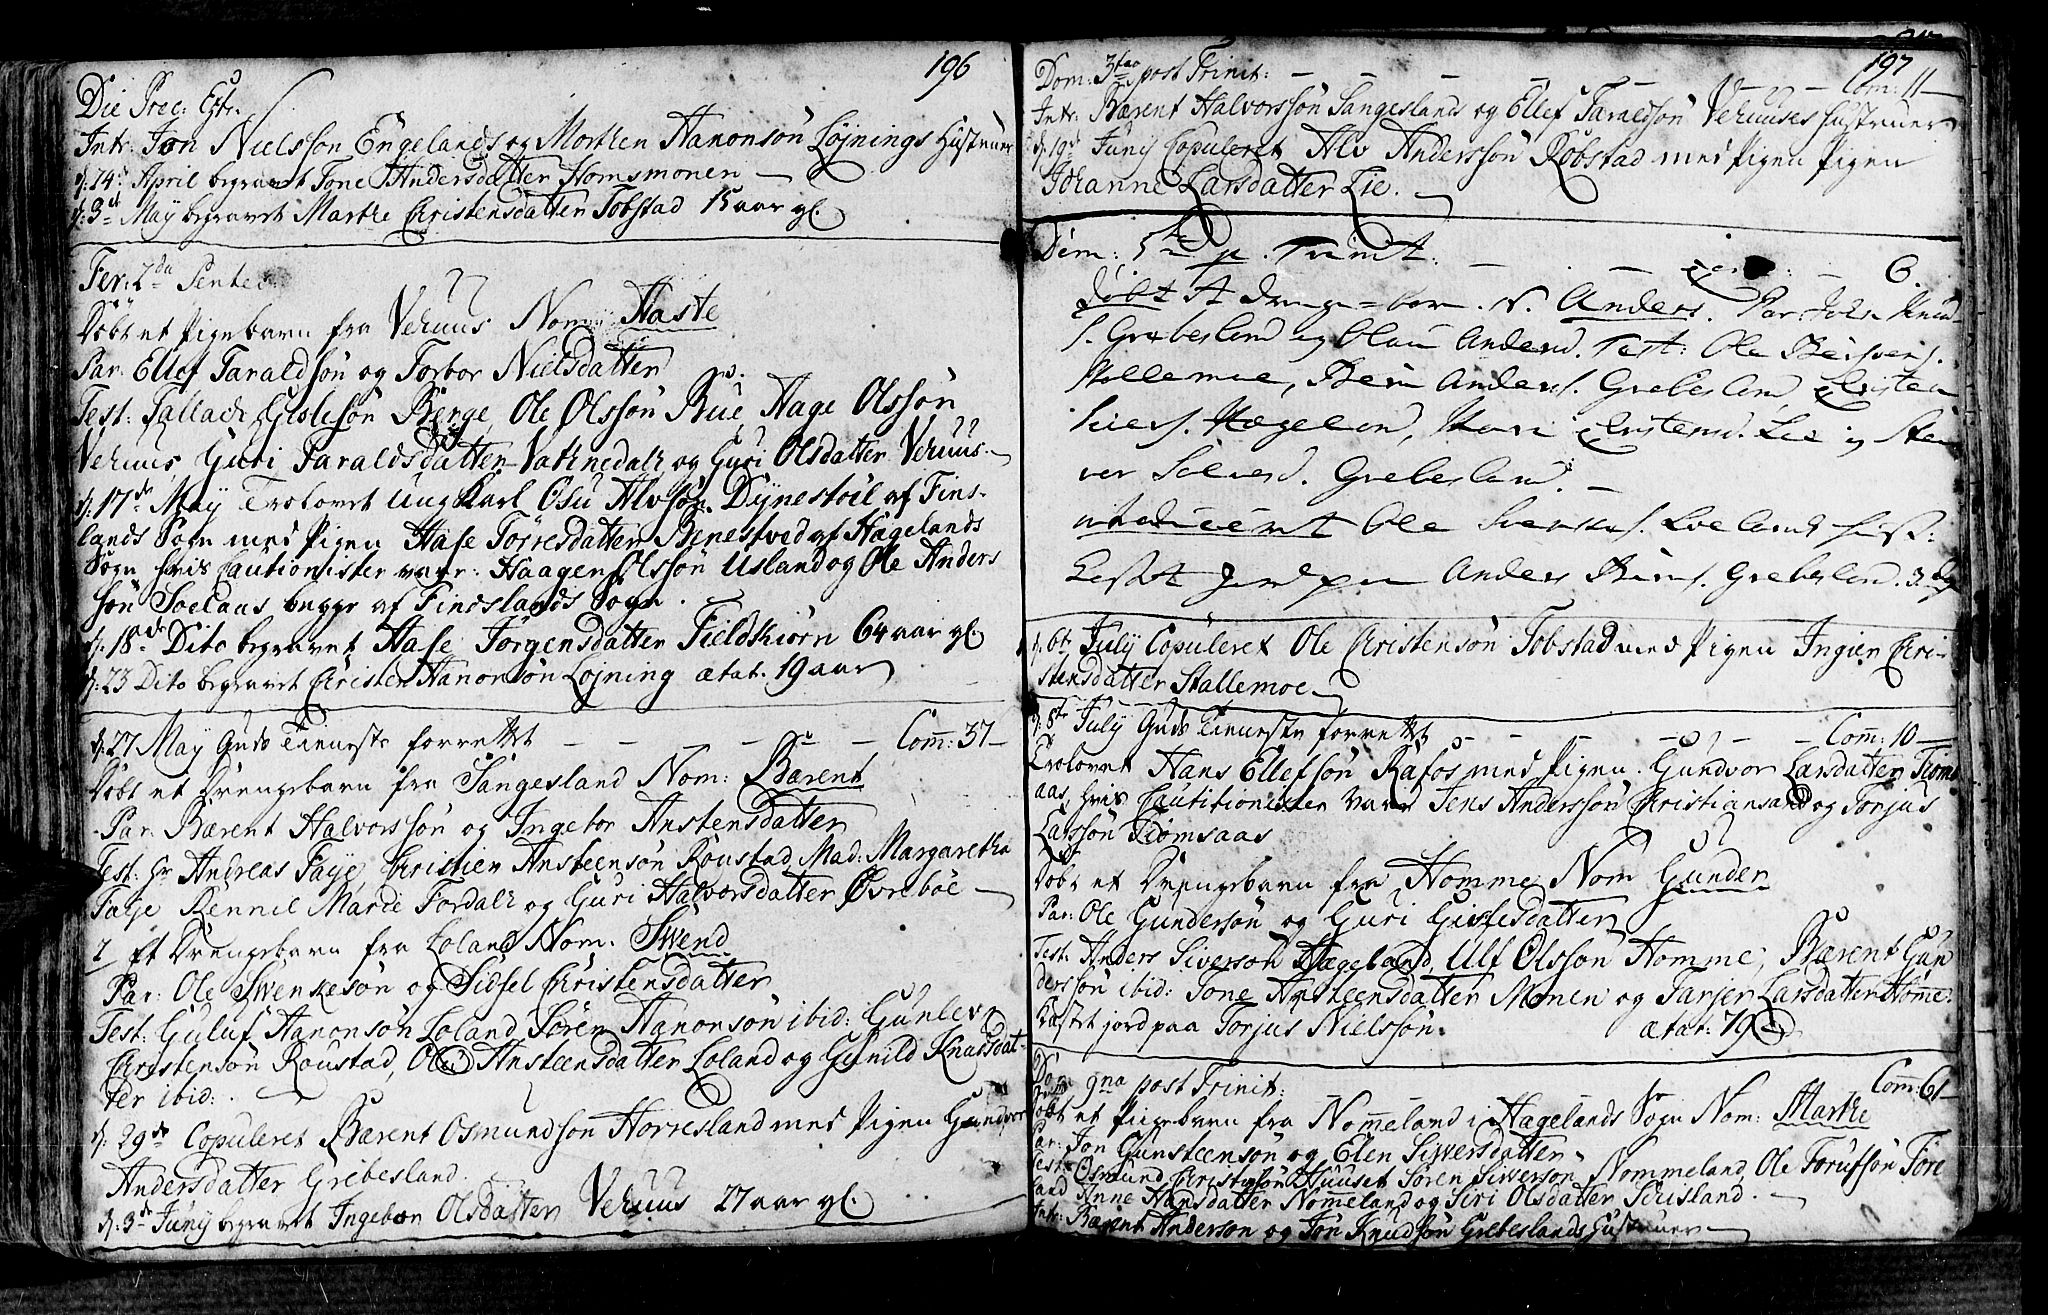 196
Die Prec: Extr.
Intr: Jon Nielssön Engelands og Morthen Hanonsön Løjnings Hustruer
d: 24 April begravet Tone Andersdatter Homsmonen —
d: 3 May begravet Marthe Christensdatter Tobstad 15 aar gl.
Fer: 2da Pentec:
Döbt et Pigebarn fra Vehuus Nom: Aaste
Par: Ellef Taraldsön og Torbor Nielsdatter
Test: Tallach Gislesön Berge, Ole Olssön Bue, Hage Olssön
Vehuus, Guri Taraldsdatter Vatnedalh og Guri Olsdatter Vehuus.
d: 17de May Trolovet Ung Karl Osu Alvsön Dynestöil af Fins-
lands Sogn med Pigen Aase Törresdatter Benestved af Hägelands
Sogn hvis Cautionister vare: Haagen Olssön Usland og Ole Anders
sön begge af Findslands Sogn.
d: 18de Dito begravet Aase Jörgensdatter Fieldskiörn 64 aar gl.
d: 23 Dito begravet Christen Hanonsön Löjning ætat. 19 aar
d: 27 May Guds Tieneste forrettet — — — — — Com: 37 —
Döbt et Drengebarn fra Sangesland Nom: Bærent
Par: Bærent Halvorssön og Ingebor Anstensdatter
Test: Hr Andreas Faye, Christen Ansteensön Röustad, Mad: Margaretha
Faye Marie Fordalh og Guri Halvorsdatter Øvreböe —
2 Et Drengebarn fra Loland Nom: Swend
Par: Ole Swenkesön og Sidsel Christensdatter
Test: Guluf Hanonsön Loland, Sören Hanonsön ibid: Gunlev
Christensön Röustad, Ansteensdatter Loland og Gunild Knudsdat-
ter ibid: .
d: 29de Copuleret Bærent Osmundsön Horresland med Pigen Gundvor
Andersdatter Grebesland.
d: 3de Junij begravet Ingebor Olsdatter Vehuus 27 aar gl.
197
Dom: 3tia post Trinit: — — — — — Com: 11 —
Intr: Bærent Halvorssön Sangeslands og Ellef Taraldsön Vehuuses Hustruer
d: 19de Junij Copuleret Alv Anderssön Röbstad med Pigen Pigen
Johanne Larsdatter Lie.
Dom: 5te p. Trinit: — — — — 6.
döbt et drenge=barn. N. Anders. Par: John Knud-
s. Grebesland og Andersd. Test: Ole
Stallemoe, Anders. Grebesland, Christen
Sivers. Hægeland, Christensd. Lie og
Grebesland. —
introduceret Ole Loelands Hust:
Kast Jord paa Anders Grebesland. 3
d: 6t July Copuleret Ole Christensön Tobstad med Pigen Ingier Chri-
stensdatter Stallemoe
d: 8de July Guds Tieneste forrettet — — — — — Com: 10 —
Trolovet Hans Ellefsön Rafos med Pigen Gundvor Larsdatter Tioms
aas, hvis Cautitionister vare Jens Anderssön Christiansand og Torjus
Larssön Tiomsaas
Döbt et Drengebarn fra Homme Nom Gunder
Par: Ole Gundersön og Guri Gislesdatter
Test: Anders Siversön Hægeland, Ulf Olssön Homme, Bærent Gun
derssön ibid: Tone Ansteensdatter Monen og Tarjer Larsdatter Homme.
Kastet jord paa Torjus Nielssön. ætat: 79
Dom 9na post Trinit: Com: 61 —
Döbt et Pigebarn fra Nomeland i Hagelands Sogn Nom: Marthe
Par: Jon Gunsteensön og Elen Siwersdatter.
Test: Osmund Sören Siwersön Nommeland, Ole
land Anne Hansdatter Nomeland og Siri Olsdatter
Intr: Bærent Andersön og Jon Knudsön Grebeslands Hustruer —